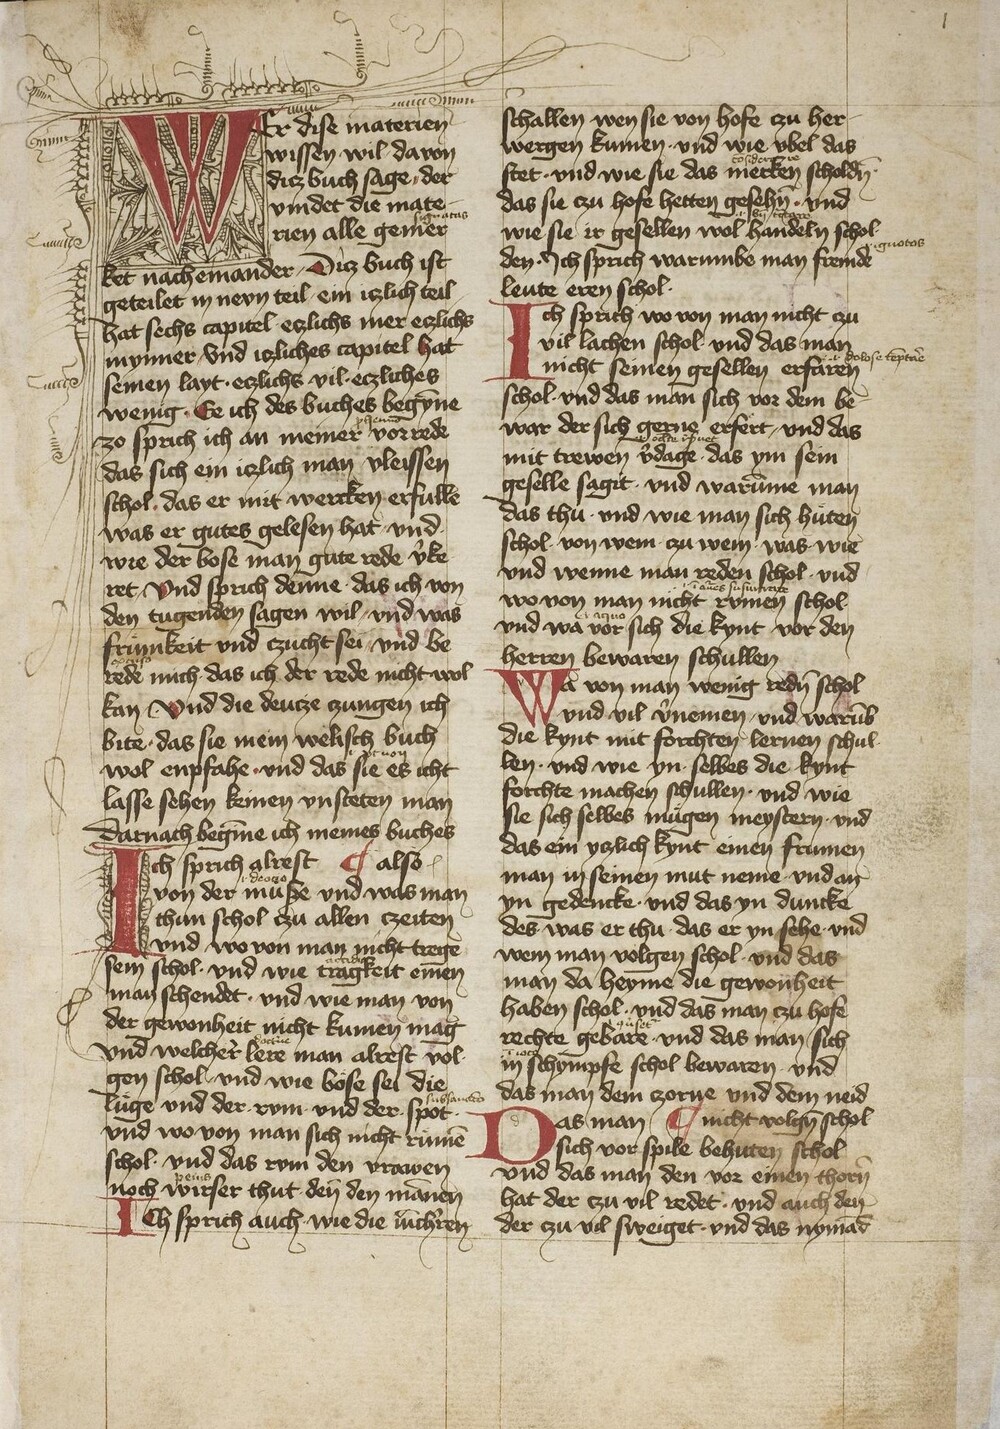 1
Wer dise materien
wissen wil davon
dicz buch sage, der
vindet die mate-
signatas
rien alle gemer
ket nacheinander, Dicz buch ist
geteilet in nevn teil, ein iczlich teil
hat sechs capitel eczlichs mer eczlichs
mynner, Und iczliches capitel hat
seinen layt, eczlichs vil, eczliches
wenig, Ee ich des buches begyne
zo sprich ich an meiner vorrede
das sich ein iczlich man vleissen
schol, das er mit wercken erfulle
was er gutes gelesen hat, und
wie der bose man gute rede v̾ke
ret Und sprich denne, das ich von
den tugenden sagen wil, vnd was
frumkeit vnd czucht sei, vnd be
rede mich, das ich der rede nicht wol
kan Und die deutze czungen ich
bite, das sie mein welisch buch
wol enpfahe, vnd das sie es icht
lasse sehen keinen vnsteten man
Darnach begīne ich meines buches
Ich sprich alrest ¶ also
von der muße vnd was man
thun schol czu allen czeiten
vnd wo von man nicht trege
sein schol, vnd wie tragkeit einen
man schendet, vnd wie man von
der gewonheit nicht kumen mag
vnd welcher lere man alrest vol-
gen schol, vnd wie böse sei die
subsannacio
lüge vnd der rvm, vnd der spot,
vnd wo von man sich nicht rümē
schol, vnd das rvm den vrawen
peius
noch wirser thut den den mānen
Ich sprich auch, wie die iūchēren
schallen, wen sie von hofe czu her-
wergen kumen, vnd wie vbel das
stet, vnd wie sie das merken scholdn̄
das sie czu hofe hetten gesehn̄, vnd
wie sie ir gesellen wol handeln schol
ignotos
den, Ich sprich warumbe man fremde
leute eren schol,
Ich sprich wo von man nicht czu
vil lachen schol, vnd das man
nicht seinen gesellen erfaren
schol, vnd das man sich vor dem be-
war der sich gerne erfert, vnd das
mit trewen v̾dage, das ym sein
geselle sagit, vnd warūme man
das thu, vnd wie man sich hüten
schol, von wem, czu wem, was, wie
vnd wenne man reden schol, vnd
wo von man nicht rvnen schol
a quo
vnd wa vor sich die kynt vor den
herren bewaren schullen
Wa von man wenig redn̄ schol
vnd vil v̾nemen, vnd warūb
die kynt mit forchten lernen schul-
len, vnd wie yn selbes die kynt
forchte machen schullen, vnd wie
sie sich selbes mügen meystern, vnd
das ein yczlich kynt einen frumen
man in seinen mut neme, vnd an
yn gedencke, vnd das yn duncke
des was er thu, das er yn sehe, vnd
wem man volgen schol, vnd das
man da heyme die gewonheit
haben schol, vnd das man czu hofe
rechte gebare, vnd das man sich
in schympfe schol bewaren, vnd
das man dem zorne vnd dem neid
Das man ¶ nicht volgn̄ schol
sich vor spile behuten schol
vnd das man den vor einen thorn̄
hat der czu vil redet, vnd auch den
der czu vil sweiget, vnd das nymād